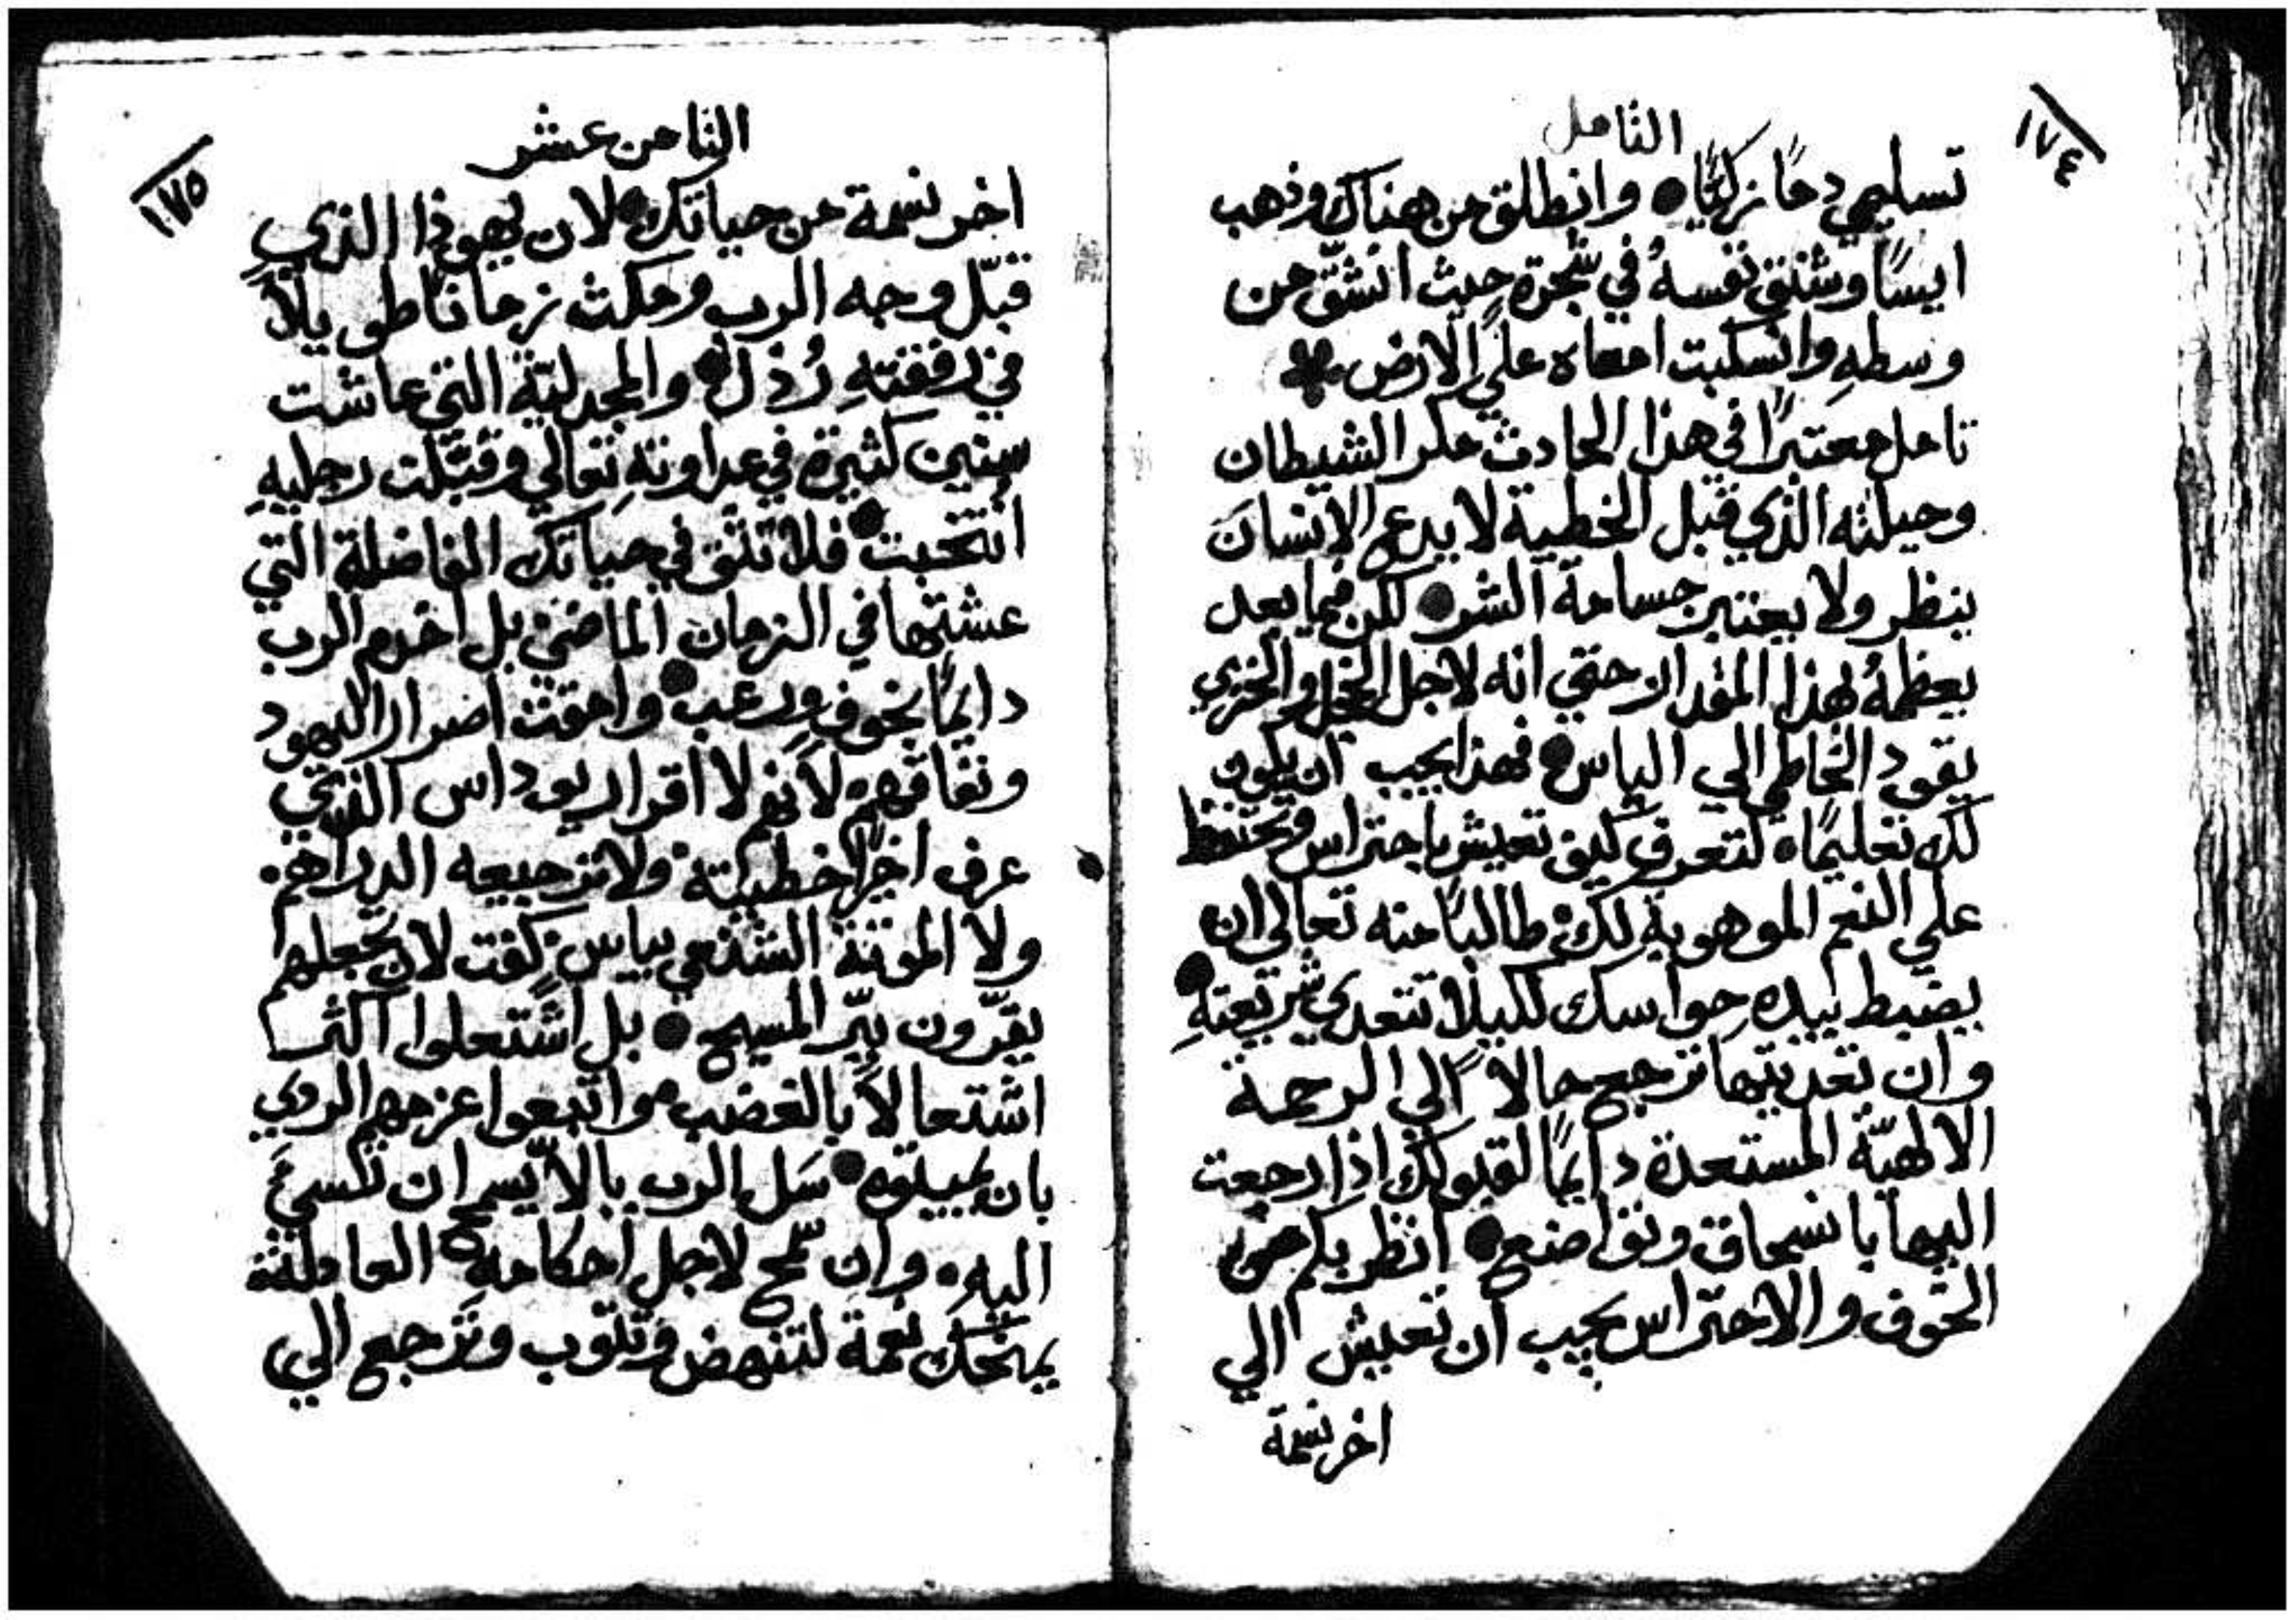 ١٧٤
التامل
تسليمي دمًا زكيًا● وانطلق من هناك وذهب
ايسًا وشنق نفسهُ في شجرة حيث انشقّ من
وسطهِ وانسكبت امعاه علي الارض
تامل معتبرًا في هذا الحادث مكر الشيطان
وحيلته الذي قبل الخطية لا يدع الانسان
ينظر ولا يعتبر جسامة الشر● لكن فيما بعد
يعظمهُ بهذا المقدار حتي انه لاجل الخجل والخزي
يقود الخاطي الي الياس● فهذا يجب ان يكون
لك تعليمًا● لتعرف كيف تعيش باحتراس وتحتفظ
علي النعم الموهوبة لك● طالبًا منه تعالي ان
يضبط بيده حواسك لكيلا تتعدي شريعتهِ●
وان تعديتها ترجع حالاً الي الرحمة
الالهيّة المستعدة دايمًا لقبولك اذا رجعت
اليها بانسحاق وتواضع● انظر بكم من
الخوف والاحتراس يجب ان تعيش الي
اخر نسمة
١٧٥
الثامن عشر
اخر نسمة من حياتك● لان يهوذا الذي
قبّل وجه الرب ومكث زمانًا طويلاً
في رفقتهِ رُذل● والمجدليّة التي عاشت
سنين كثيرة في عداوتهِ تعالي وقبّلت رجليهِ
انتخبت● فلا تثق في حياتك الفاضلة التي
عشتها في الزمان الماضي بل اخدم الرب
دايمًا بخوف ورعب● وامقت اضرار اليهود
ونفاقهم لانهم لا اقرار يوداس الذي
عرف اخيرًا خطيته● ولا ترجيعه الدراهم●
ولا الموتة الشنعي بياس كفت لان تجعلهم
يقرّون ببّر المسيح● بل اشتعلوا اكثر
اشتعالاً بالغضب● واتبعوا عزمهم الردي
بان يميتوه● سَل الرب بالاّ يسمح ان تسيَ
اليه● وان سمح لاجل احكامهِ العادلة
يمنحك نعمة لتنهض وتتوب وترجع الي